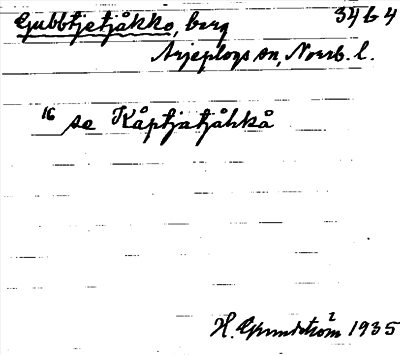 Gjubbtjetjåkko, berg 34 b 4
Arjeplogs sn, Norrb. l.
16 se Kåptjatjåhkå
H. Grundström 2 1935